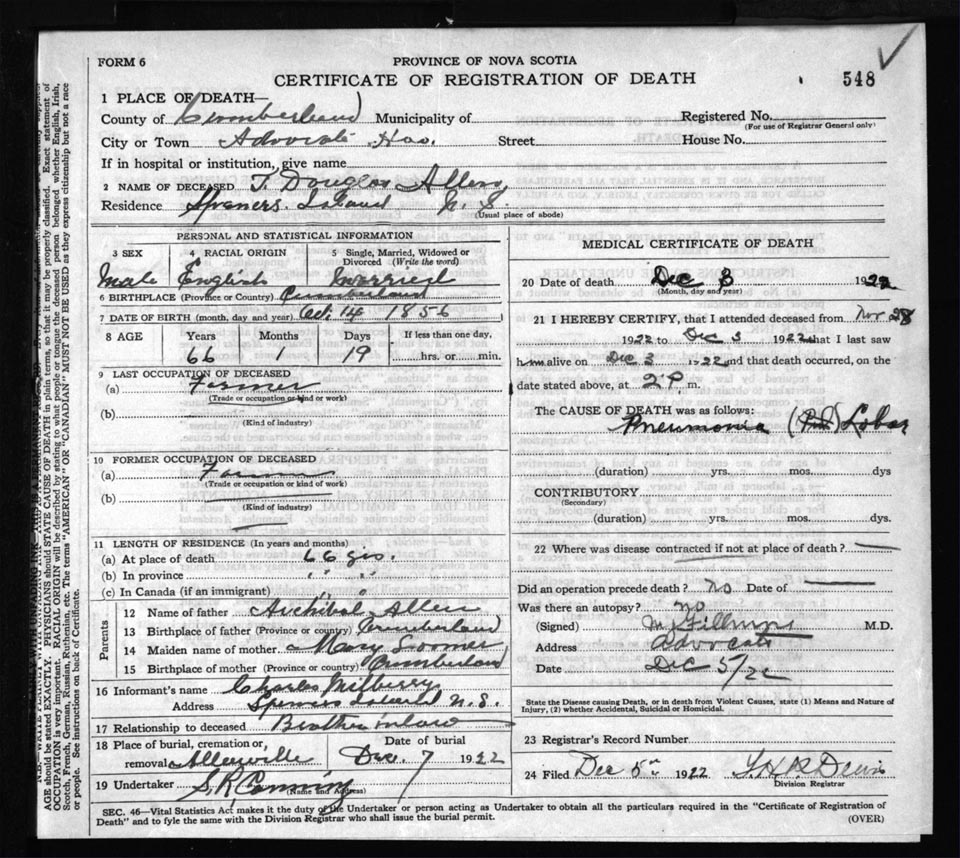 FORM 6
PROVINCE OF NOVA SCOTIA
CERTIFICATE OF REGISTRATION OF DEATH 548
1 PLACE OF DEATH—
County of Cumberland Municipality of Registered No.
(For use of Registrar General only)
City or Town Advocate Har. Street House No.
If in hospital or institution, give name
2 NAME OF DECEASED T. Douglas Allen
Residence Spencers Island N. S.
(Usual place of abode)
PERSONAL AND STATISTICAL INFORMATION
3 SEX 4 RACIAL ORIGIN 5 Single, Married, Widowed or Divorced (Write the word)
Male English Married
6 BIRTHPLACE (Province or Country) Cumberland
7 DATE OF BIRTH (month, day and year) Oct 14 1856
8 AGE Years Months Days If less than one day,
66 1 19 hrs. or min.
9 LAST OCCUPATION OF DECEASED
(a) Farmer
(Trade or occupation or kind or work)
(b)
(Kind of industry)
10 FORMER OCCUPATION OF DECEASED
(a) Farmer
(Trade or occupation or kind of work)
(b)
(Kind of industry)
11 LENGTH OF RESIDENCE (In years and months)
(a) At place of death 66 yrs.
(b) In province " "
(c) In Canada (if an immigrant)
Parents
12 Name of father Archibal Allen
13 Birthplace of father (Province or country) Cumberland
14 Maiden name of mother Mary
15 Birthplace of mother (Province or country) Cumberland
16 Informant's name Charles Milberry
Address Spencers Island N.S.
17 Relationship to deceased Brother inlaw
18 Place of burial, cremation, or removal Date of burial
Allenville Dec. 7 1922
19 Undertaker S. R. Canning
(Name and address)
MEDICAL CERTIFICATE OF DEATH
20 Date of death Dec 3 1922
(Month, day and year)
21 I HEREBY CERTIFY, that I attended deceased from Nov 28
1922 to Dec 3 1922 that I last saw
him alive on Dec 3 1922 and that death occurred, on the
date stated above, at 2 P m.
The CAUSE OF DEATH was as follows:
Pneumonia Lobar
(duration) yrs. mos. dys
CONTRIBUTORY
(Secondary)
(duration) yrs. mos. dys.
22 Where was disease contracted if not at place of death?
Did an operation precede death? No Date of
Was there an autopsy? no
(Signed) M.D.
Address Advocate
Date Dec 5/22
State the Disease causing Death, or in death from Violent Causes, state (1) Means and Nature of
Injury, (2) whether Accidental, Suicidal or Homicidal.
23 Registrar's Record Number
24 Filed Dec 5th 1922
Division Registrar
SEC. 46—Vital Statistics Act makes it the duty of the Undertaker or person acting as Undertaker to obtain all the particulars required in the "Certificate of Registration of
Death" and to fyle the same with the Division Registrar who shall issue the burial permit.
(OVER)
AGE should be stated EXACTLY. PHYSICIANS should STATE CAUSE OF DEATH in plain terms, so that it may be properly classified. Exact statement of
OCCUPATION is very important. RACIAL ORIGIN will be described by stating to what people or tongue the deceased person belonged whether English, Irish,
Scotch, French, German, Russian, Ruthenian, etc. The terms "AMERICAN" OR "CANADIAN" MUST NOT BE USED as they express citizenship but not a race
or people. See instructions on back of Certificate.